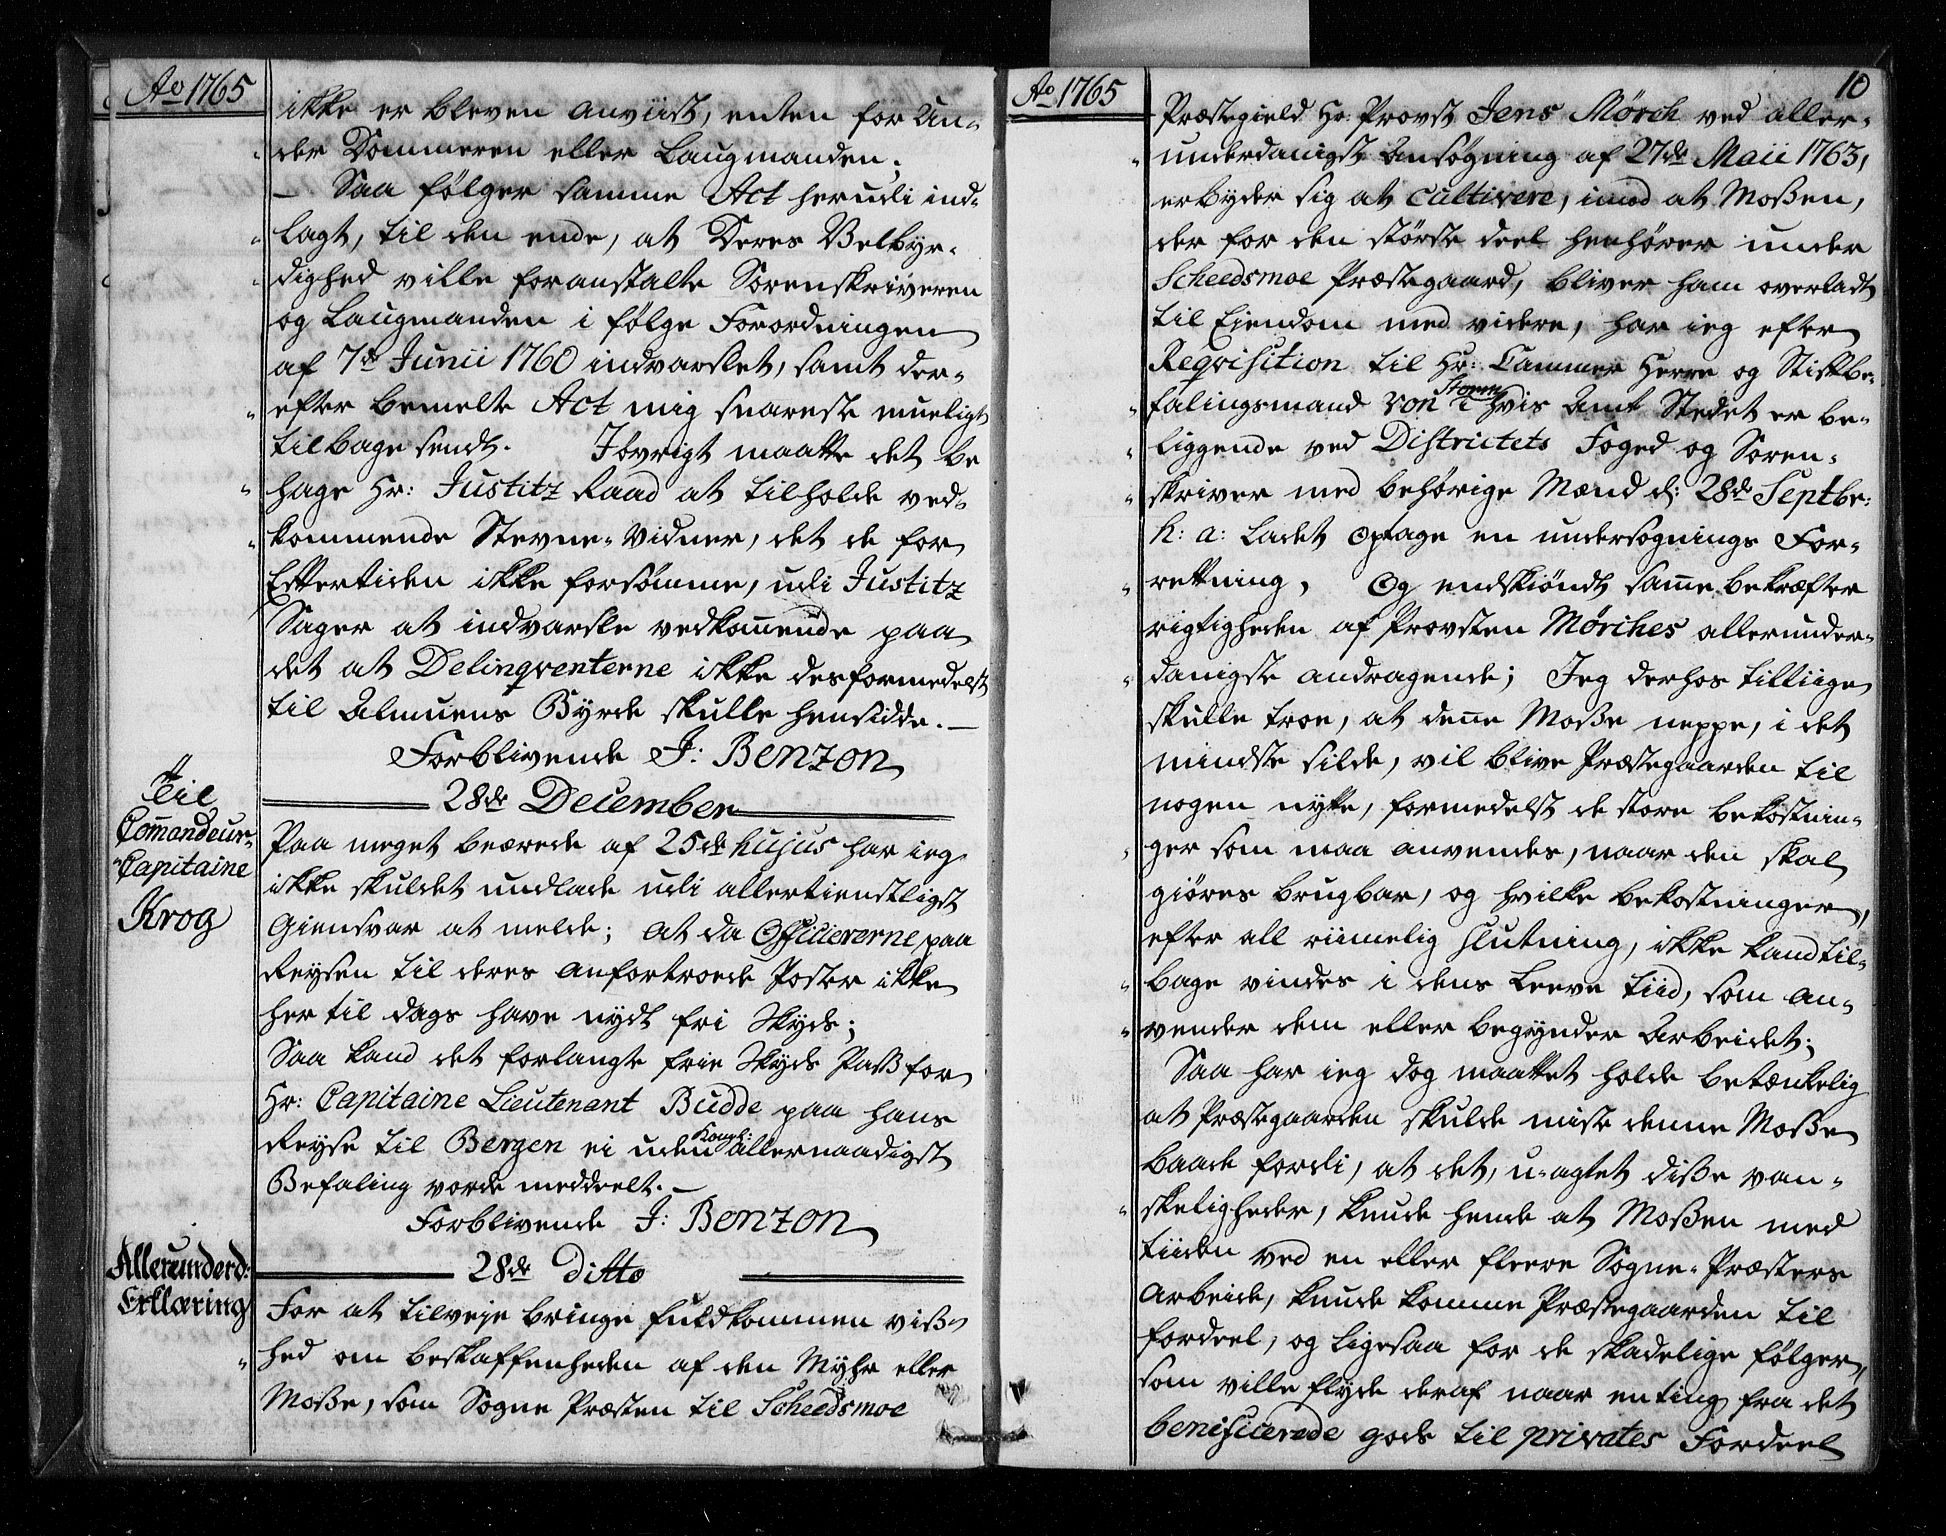 Ao 1765
ikke er bleven anviist, enten for Un-
der Dommeren eller Laugmanden;
— Saa følger samme Act herudi ind-
lagt, til den ende, at Deres Velbyr-
dighed ville foranstalte Sorenskriveren
og Laugmanden i følge Forordningen
af 7de Junii 1760 indvarslet, samt der-
efter bemelte Act mig snareste mueligt
tilbage sendt. Jøvrigt maatte det be
hage Hr: Justitz Raad at tilholde ved-
kommende Stevne-Vidner, det de for
Efftertiden ikke forsømme, udi Justitz
Sager at indvarsle vedkom̄ende paa
det at Delinqventerne ikke desformedelst
til Almuens Byrde skulle hensidde. —
Forblivende J: Benzon
28de December
Til
Com̄andeur-
Capitaine
Krog
Paa meget beærede af 25de hujus har ieg
ikke skuldet undlade udi allertienstligst
Giensvar at melde; at da Officiererne paa
Reysen til deres anfortroede Poster ikke
her til dags have nydt fri Skyds;
Saa kand det forlangte frie Skyds Pass for
Hr: Capitaine Lieutenant Budde paa hans
Reyse til Bergen ei uden Kongl: allernaadigst
Befaling vorde meddeelt. —
Forblivende J: Benzon
28de Ditto
Allerunderd:
Erklæring
For at tilveje bringe fuldkommen viß-
hed om beskaffenheden af den Myhr eller
Moße, som Sogne Præsten til Scheedsmoe
Ao 1765
10
Præstegield Hr: Provst Jens Mørch ved aller-
underdanigst Ansøgning af 27de Maii 1763,
erbyder sig at Cultivere, imod at Moßen,
der for den største deel henhører under
Scheedsmoe Præstegaard, bliver ham overladt
til Ejendom med videre, har ieg efter
Reqvisition til Hr: Cammer Herre og Stiftbe-
falingsmand von Storm i hvis Amt Stedet er be-
liggende ved Districtets Foged og Soren-
skriver med behørige Mænd d: 28de Septbr:
h: a: ladet optage en undersøgnings For-
rettning, Og endskiøndt sam̄e bekræfter
rigtigheden af Provsten Mørches allerunder-
danigste andragende; Jeg derhos tilliige
skulle troe, at den̄e Moße neppe, i det
mindste silde, vil blive Præstegaarden til
nogen nytte, formedelst de store bekostnin-
ger som maa anvendes, naar den skal
giøres brugbar, og hvilke bekostninger,
efter all riimelig slutning, ikke kand til-
bage vindes i dens Leeve tiid, som an-
vender dem eller begynder Arbeidet;
Saa har ieg dog maattet holde betænkelig
at Præstegaarden skulde miste denne Moße
baade fordi, at det, u-agtet diße van-
skeligheder, kunde hende at Moßen med
tiiden ved en eller fleere Sogne-Præsters
Arbeide, kunde komme Præstegaarden til
fordeel, og ligesaa for de skadelige følger,
som ville flyde deraf naar en ting fra det
benificerede gods til privates Fordeel